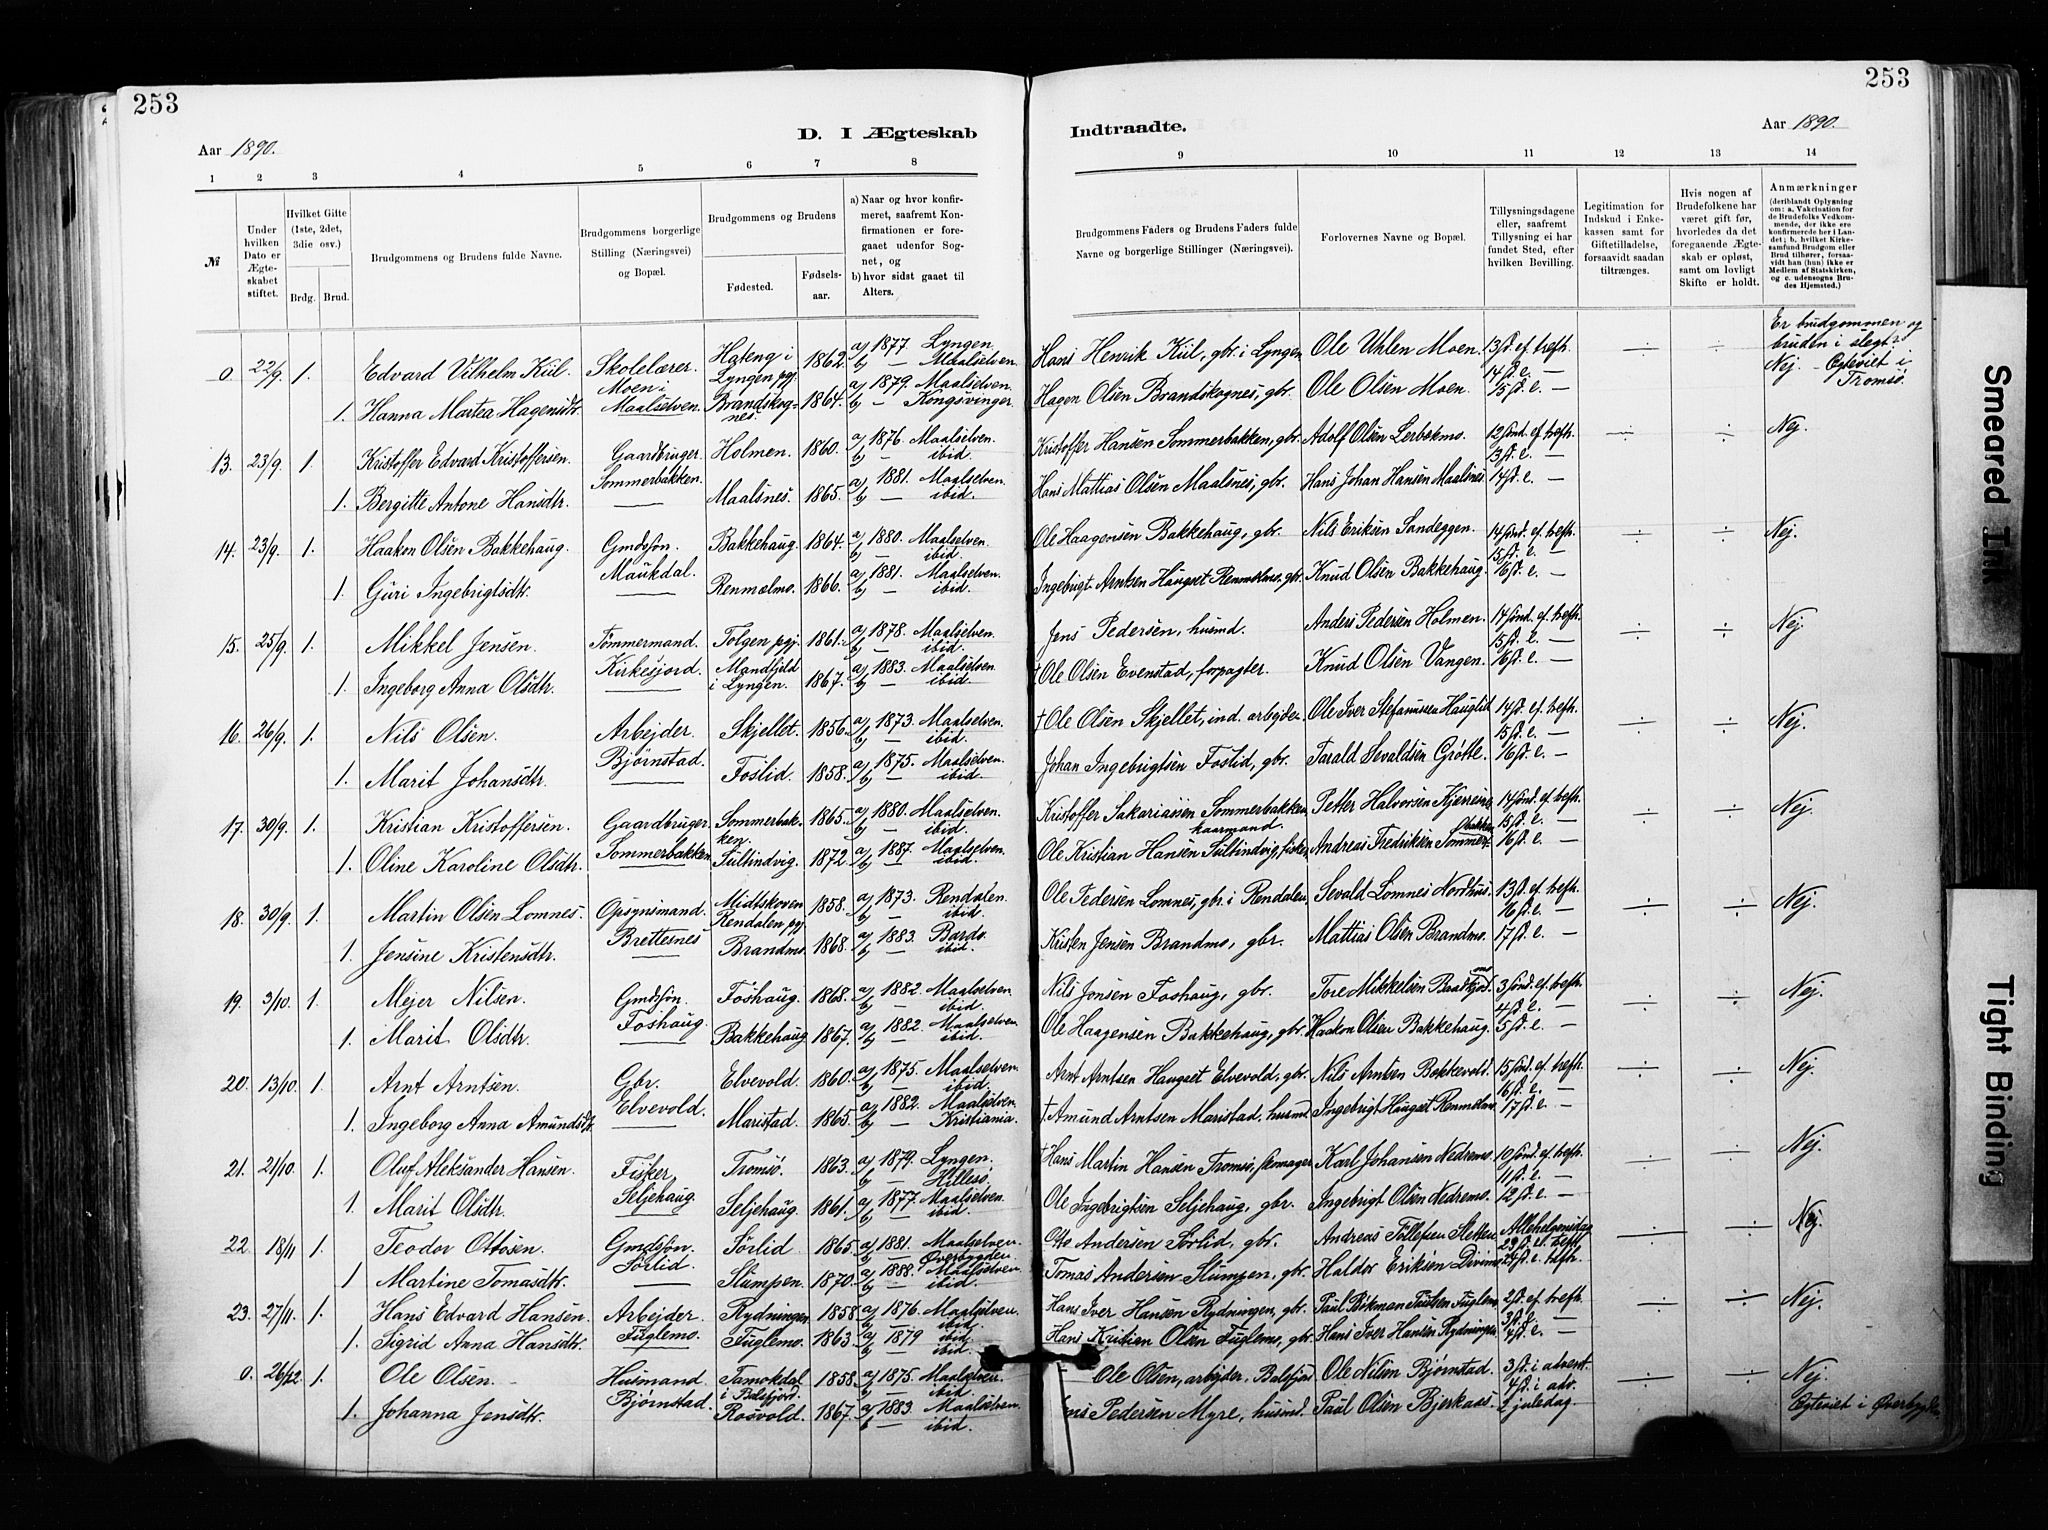 253
253
D. I Ægteskab Indtraadte.
Aar 1890.
Aar 1890.
1 2 3 4 5 6 7 8 9 10 11 12 13 14
№
Under hvilken Dato er Ægteskabet stiftet.
Hvilket Gifte (1ste, 2det, 3die osv.)
Brdg. Brud.
Brudgommens og Brudens fulde Navne.
Brudgommens borgerlige Stilling (Næringsvei) og Bopæl.
Brudgommens og Brudens
Fødested.
Fødselsaar.
a) Naar og hvor konfirmeret, saafremt Konfirmationen er foregaaet udenfor Sognet, og
b) hvor sidst gaaet til Alters.
Brudgommens Faders og Brudens Faders fulde Navne og borgerlige Stillinger (Næringsvei).
Forlovernes Navne og Bopæl.
Tillysningsdagene eller, saafremt Tillysning ei har fundet Sted, efter hvilken Bevilling.
Legitimation for Indskud i Enkekassen samt for Giftetilladelse, forsaavidt saadan tiltrænges.
Hvis nogen af Brudefolkene har været gift før, hvorledes da det foregaaende Ægteskab er opløst, samt om lovligt Skifte er holdt.
Anmærkninger (deriblandt Oplysning om: a. Vakcination for de Brudefolks Vedkommende, der ikke ere konfirmerede her i Landet; b, hvilket Kirkesamfund Brudgom eller Brud tilhører, forsaavidt han (hun) ikke er Medlem af Statskirken, og c. udensogns Brudes Hjemsted.)
Er brudgommen og bruden i slegt?
0 22/9. 1. Edvard Vilhelm Kiil. Skolelærer. Hateng i Lyngen pgj. 1862. a) 1877 Lyngen. b) — Maalselven. Hans Henrik Kiil, gbr. i Lyngen Ole Uhlen Moen. 13 s. ef. trefh. ÷ ÷ Nej. - Egteviet i Tromsö.
1. Hanna Martea Hagensdtr. Moen i Maalselven. Brandskognes. 1864. a) 1879. Maalselven. b) — Kongsvinger. Hagen Olsen Brandskognes, gbr. Ole Olsen Moen. 14 s. e. — 15 s. e. —
13. 23/9. 1. Kristoffer Edvard Kristoffersen. Gaardbruger. Holmen. 1860. a) 1876. Maalselven. b) — ibid. Kristoffer Hansen Sommerbakken, gbr. Adolf Olsen Lerbakmo. 12 sönd. ef. trefh. 13 s. e. — ÷ ÷ Nej.
1. Bergitte Antone Hansdtr. Sommerbakken. Maalsnes. 1865. a) 1881. Maalselven. b) — ibid. Hans Mattias Olsen Maalsnes, gbr. Hans Johan Hansen Maalsnes. 14 s. e. —
14. 23/9. 1. Haakon Olsen Bakkehaug. Gmdssön. Bakkehaug. 1864. a) 1880. Maalselven. b) — ibid. Ole Haagensen Bakkehaug, gbr. Nils Eriksen Sandeggen. 14 sönd. ef. trefh. 15 s. e. — ÷ ÷ Nej.
1. Guri Ingebrigtsdtr. Maukdal. Renmælmo. 1866. a) 1881. Maalselven. b) — ibid. Ingebrigt Arntsen Haugset Renmælmo, gbr. Knud Olsen Bakkehaug. 16 s. e. —
15. 25/9. 1. Mikkel Jensen. Tømmermand. Tolgen pgj. 1861. a) 1878. Maalselven. b) — ibid. Jens Pedersen, husmd. Anders Pedersen Holmen. 14 sönd. ef. trefh. 15 s. e. — ÷ ÷ Nej.
1. Ingeborg Anna Olsdtr. Kirkesjord. i Lyngen. 1867. a) 1883. Maalselven b) — ibid. Ole Olsen Evenstad, forpagter. Knud Olsen Vangen. 16 s. e. —
16. 26/9. 1. Nils Olsen. Arbejder. Skjellet. 1856. a) 1873. Maalselven. b) — ibid. † Ole Olsen Skjellet, ind. arbejder. Ole Iver Stefanusen Hauglid 14 s. ef. trefh. 15 s. e. — ÷ ÷ Nej.
1. Marit Johansdtr. Bjørnstad. Foslid. 1858. a) 1875. Maalselven. b) — ibid. Johan Ingebrigtsen Foslid, gbr. Tarald Sevaldsen Grøtte. 16 s. e. —
17. 30/9. 1. Kristian Kristoffersen. Gaardbruger. Sommerbakken. 1865. a) 1880. Maalselven. b) — ibid. Kristoffer Sakariassen Sommerbakken, kaarmand. Petter Halvorsen Kjerresnes 14 sönd. ef. trefh. 15 s. e. — ÷ ÷ Nej.
1. Oline Karoline Olsdtr. Sommerbakken. Sultindvig. 1872. a) 1887. Maalselven. b) — ibid. Ole Kristian Hansen Sultindvig, fisker. Andreas Fredriksen Sommerbakken 16 s. e. —
18. 30/9. 1. Martin Olsen Lomnes. Opsynsmand. Midtskoven Rendalen pgj. 1858. a) 1873. Rendalen. b) — ibid. Ole Pedersen Lomnes, gbr. i Rendalen. Sevald Lomnes Nordhus. 13 s. ef. trefh. 16 s. e. — ÷ ÷ Nej.
1. Jensine Kristensdtr. Brettesnes Brandmo. 1868. a) 1883. Bardo. b) — ibid. Kristen Jensen Brandmo, gbr. Mattias Olsen Brandmo. 17 s. e. —
19. 3/10. 1. Mejer Nilsen. Gmdssön. Foshaug. 1868. a) 1882. Maalselven. b) — ibid. Nils Jonsen Foshaug, gbr. Tore Mikkelsen 3 sönd. ef. trefh. 4 s. e. — ÷ ÷ Nej.
1. Marit Olsdtr. Foshaug. Bakkehaug 1867. a) 1882. Maalselven b) — ibid. Ole Haagensen Bakkehaug, gbr. Haakon Olsen Bakkehaug. 5 s. e. —
20. 13/10. 1. Arnt Arntsen. Gbr. Elvevold. 1860. a) 1875. Maalselven. b) — ibid. Arnt Arntsen Haugset Elvevold, gbr. Nils Arntsen Bakkevold. 15 sönd. ef. trefh. 16 s. e. — ÷ ÷ Nej.
1. Ingeborg Anna Amundsdtr. Elvevold. Maristad. 1865. a) 1882. Maalselven b) — Kristiania. † Amund Arntsen Maristad, husmd. Ingebrigt Haugset Renmælmo. 17 s. e. —
21. 21/10. 1. Oluf Aleksander Hansen. Fisker Tromsö. 1863. a) 1879. Lyngen. b) — Hillesö. † Hans Martin Hansen Tromsö, Karl Johansen Nedremo. 10 sönd. ef. trefh. 11 s. e. — ÷ ÷ Nej.
1. Marit Olsdtr. Seljehaug. Seljehaug. 1861. a) 1877. Maalselven b) — ibid. Ole Ingebrigtsen Seljehaug, gbr. Ingebrigt Olsen Nedremo. 12 s. e. —
22. 18/11 1. Teodor Ottosen. Gmdssön. Sørlid. 1865. a) 1881. Maalselven. b) — Øverbygden Otto Andersen Sørlid, gbr. Andreas Tollefsen Sletten. Allehelgensdag 23 s. ef. trefh. ÷ ÷ Nej.
1 Martine Tomasdtr. Sørlid. Slumpen. 1870. a) 1888. Maalselven b) — ibid. Tomas Andersen Slumpen, gbr. Haldor Eriksen Divimo. 24 s. e. trefh.
23. 27/11. 1. Hans Edvard Hansen. Arbejder Rydningen. 1858. a) 1876. Maalselven. b) — ibid. Hans Iver Hansen Rydningen, gbr. Paul Bökman Paulsen Fuglemo. 2 s. ef. trefh. 3 s. e. ÷ ÷ Nej.
1. Sigrid Anna Hansdtr. Fuglemo. Fuglemo. 1863. a) 1879 ibid. b) — ibid. Hans Kristian Olsen Fuglemo, gbr. Hans Iver Hansen Rydningen 4 s. e. —
0. 26/12. 1. Ole Olsen. Husmand. Tamokdal i Balsfjord. 1858. a) 1875. Maalselven. b) — ibid Ole Olsen, arbejder, Balsfjord Ole Nilsen Bjørnstad. 3 s. i advent. 4 s. i adv. ÷ ÷ Nej. Egteviet i Øverbygden
1. Johanna Jensdtr. Bjørnstad. Rosvold. 1867. a) 1883. Maalselven. b) — ibid. Jens Pedersen Myre, husmd. Paul Olsen Bjerkaas. juledag.
Smeared Ink
Tight Binding